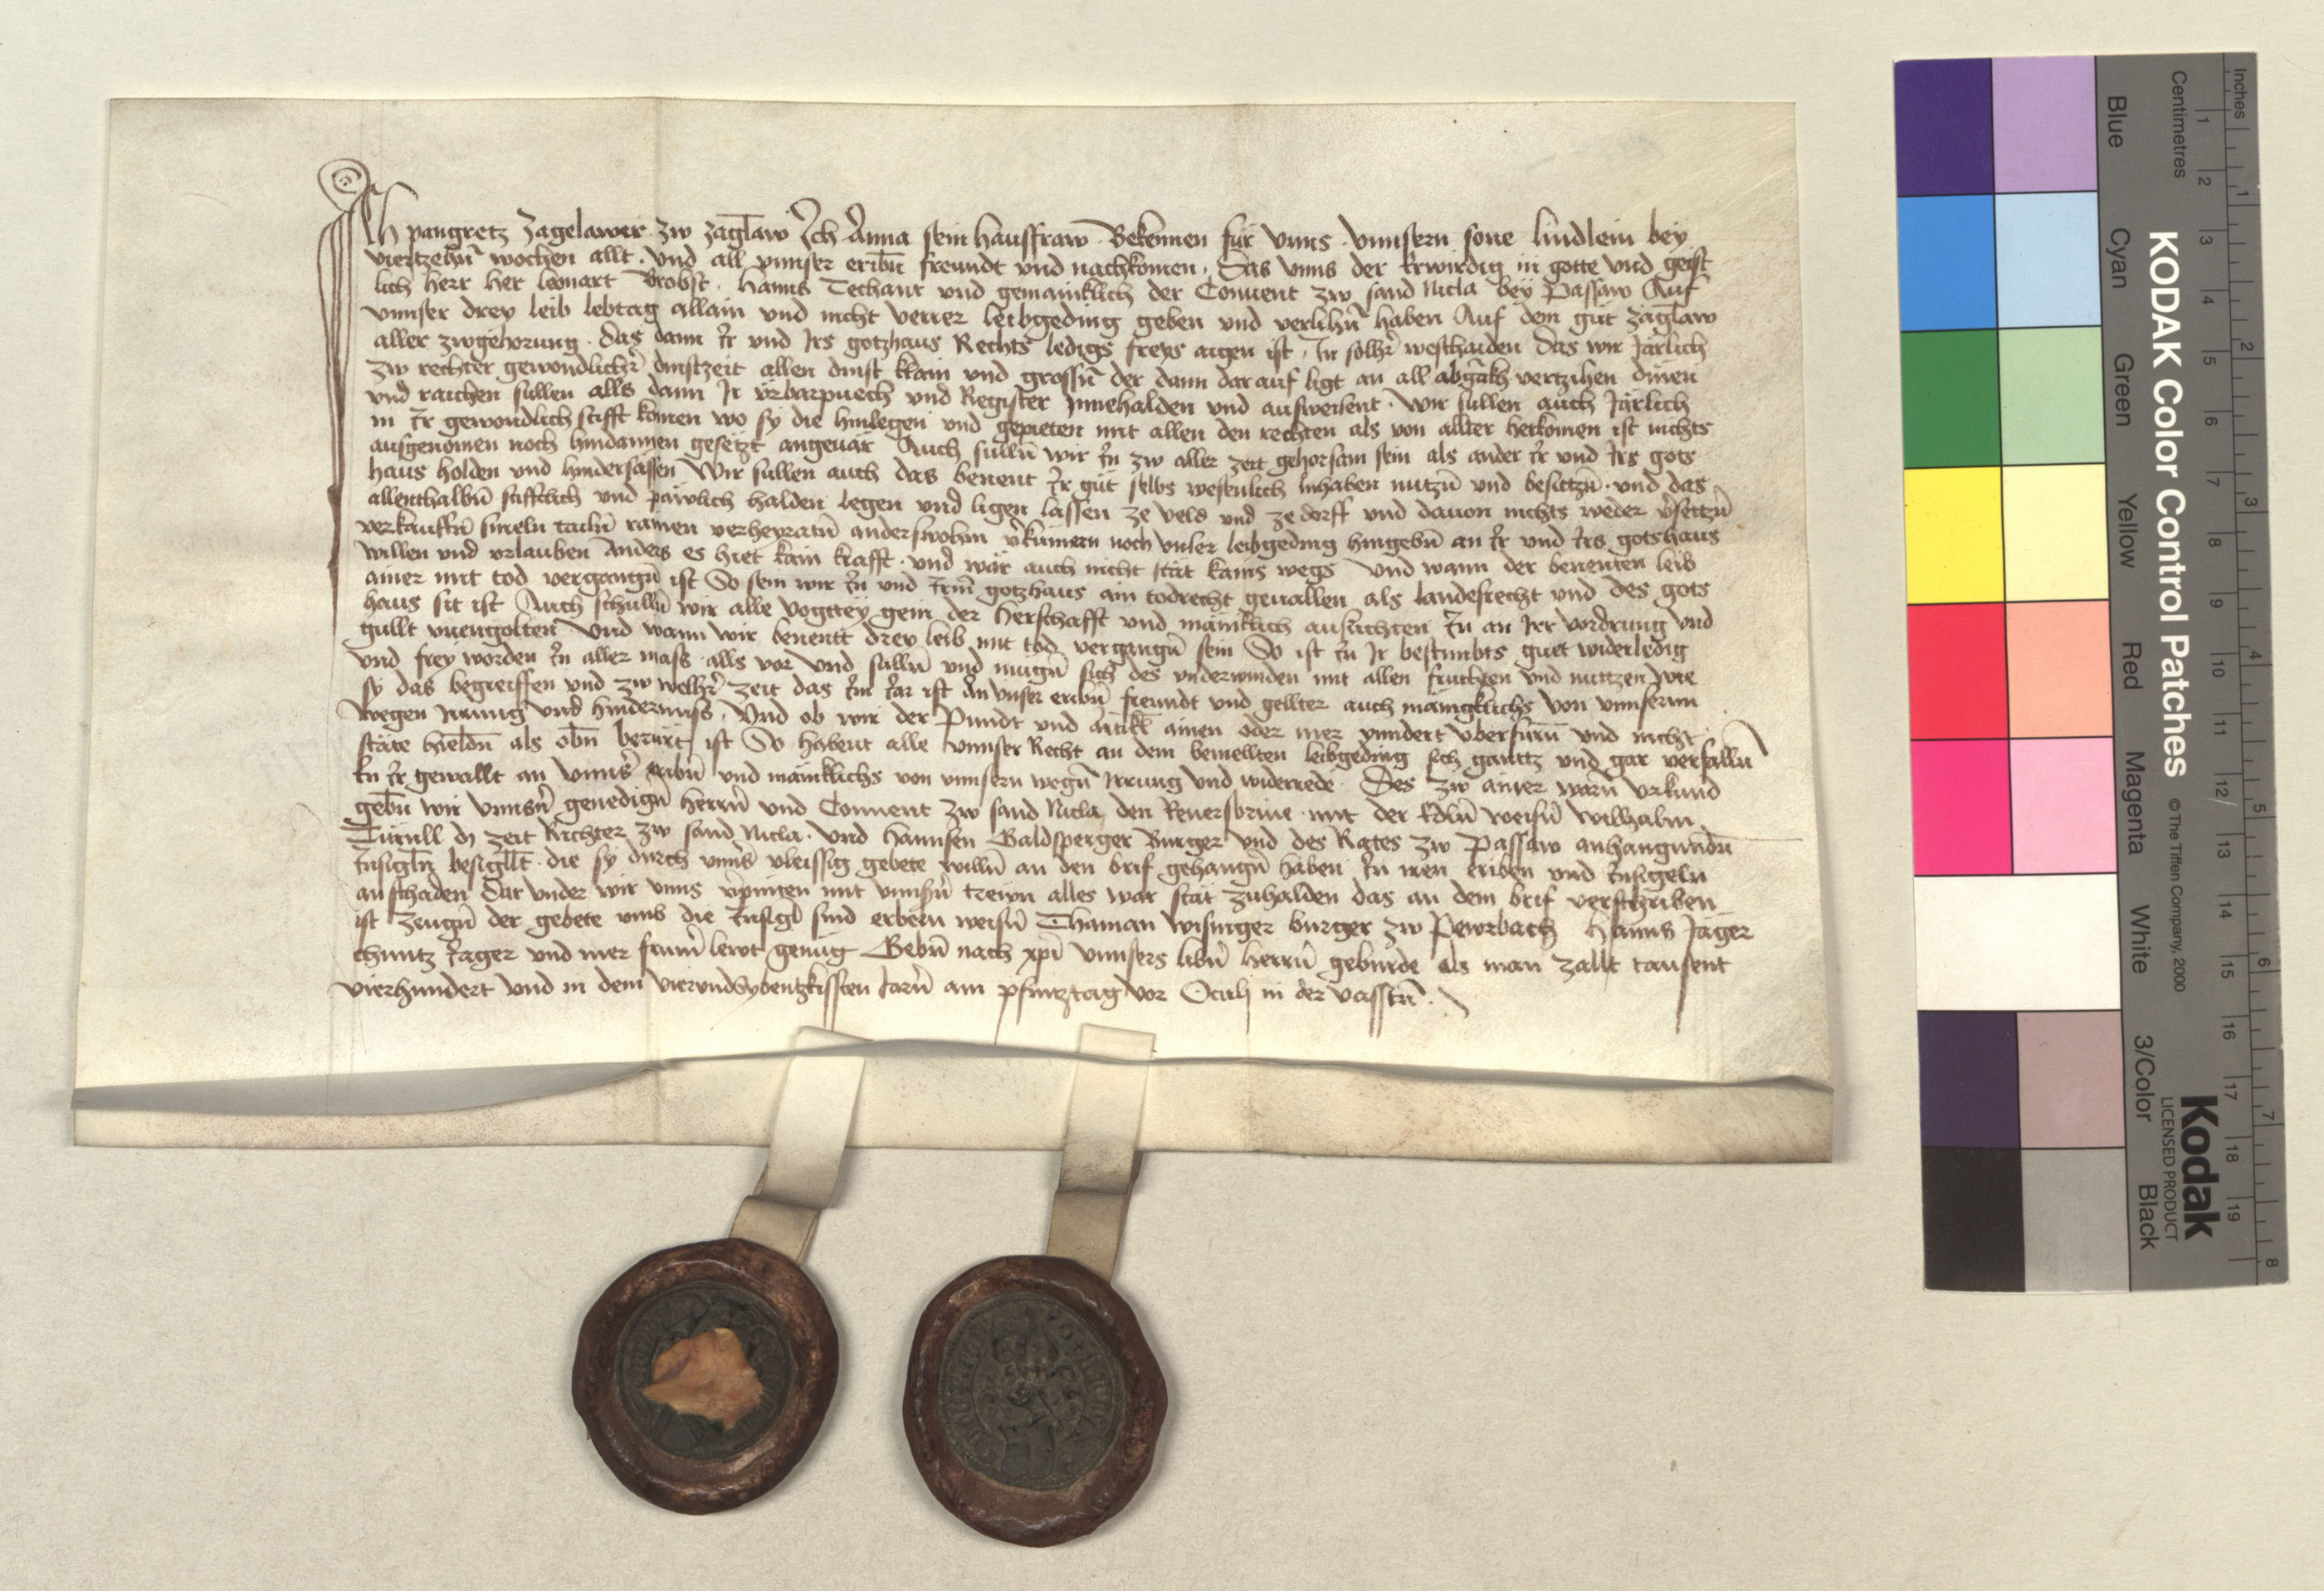 Ich pangretz Zagelawer zw zaglaw Ich Anna sein hausfraw Bekennen für vnns vnnsern sone lindlein bey
viertzehn̄ wochen allt und all vnnser eribn̄ freundt vnd nachkomen, Das vnns der Erwirdig in gotte vnd geist
lich herr her leonart Brobst, Hanns Techant vnd gemainklich der Conuent zw sand Nicla bey Passaw Auf
vnnser drey leib lebtag allain vnd nicht verrer leibgeding geben vnd verlihn̄ haben Auf dem gut zaglaw
aller zwgehorung. das dann Ir vnd Irs gotzhaus Rechts ledigs freys aigen ist, In solhr̄ weschaiden das wir Järlich
zw rechter gewondlichr̄ dinstzeit allen dinst klain vnd grossn̄ der dann darauf ligt an all abgankh vertzihen dinen
vnd raichen sullen alls dann Ir vrbarpuech vnd Register Innehalden vnd ausweisent. Wir sullen auch Järlich
in Ir gewondlich stifft komen wo sy die hinlegen vnd gepieten mit allen den rechten als von allter herkomen ist nichts
ausgenomen noch hindannen gesetzt angeuär Auch sulln̄ wir In zw aller zeit gehorsam sein als ander Ir vnd Irs gots
haus holden vnd hindersässen Wir sullen auch das benent Ir gut selbs wesenlich Inhaben nutzn̄ vnd besitzn̄. vnd das
allenthalbn̄ stifftlich vnd päwlich halden legen vnd ligen lassen ze veld vnd ze dorff vnd dauon nichts weder v̄setzn̄
verkauffn̄ smeln tailn̄ ramen verheyratn̄ anderswohin v̄kumern noch vnser leibgeding hingebn̄ an Ir vnd Irs gotshaus
willen vnd vrlauben Anders es hiet kain krafft. vnd wär auch nicht stät kains wegs Vnd wann der benenten leib
ainer mit tod vergangn̄ ist So sein wir In vnd Irm̄ gotzhaus ain todrecht geuallen als landesrecht vnd des gots
haus sit ist Auch schulln̄ wir alle vogttey gein der herschafft vnd mainklich ausrichten In an Irr vordrung vnd
gullt vnengolten Vnd wann wir benentt drey leib mit tod vergangn̄ sein So ist In Ir bestimbts guet widerledig
vnd frey worden In aller mass alls vor vnd sulln̄ vnd mugn̄ sich des vnderwinden mit allen fruchten vnd nutzen wie
sy das begreiffen vnd zw welhr̄ zeit das Im Iar ist An vnser eribn̄ freundt vnd gellter auch mäingklichs von vnnsernn
wegen Irrung vnd hindernuss, Vnd ob wir der Pundt vnd artikl ainen oder mer yndert vberfurn̄ vnd nicht
stäte hieldn̄ als obn̄ berürt ist So habent alle vnnser Recht an dem bemellten leibgeding sich gantz vnd gar verfalln̄
In Ir gewallt an vnnsr̄ eribn̄ vnd mainklichs von vnnsern wegn̄ Irrung vnd widerrede. Des zw ainer warn̄ vrkund
gebn̄ wir vnnsn̄ genedign̄ herrn̄ vnd Conuent zw sand Nicla den Reuersbriue mit der Edln̄ weisn̄ Willhalm
Türnll dy zeit Richter zw sand Nicla. vnd hannsen Baldsperger Burger vnd des Rates zw Passaw anhangundn̄
Insigln̄ besigllt. die sy durch vnns vleissig gebete willn̄ an den brif gehangn̄ haben In iren eriben vnd Insigeln
an schaden Dar vnder wir vnns v̄pinten mit vnnsn̄ trewn alles war stät zuhalden das an dem brif verschriben
ist Zeugn̄ der gebete vmb die Insigl sind erbern weisn̄ Thaman wisinger burger zw Pewrbach Hanns Jäger
chuntz Iager vnd mer frum̄ lewt genug Gebn̄ nach xp̄i vnnsers libn̄ herrn̄ geburde als man zallt tausent
vierhundert vnd in dem vierundsybentzkissten Iarn̄ am pfintztag vor Oculi in der vasstn̄.
KODAK Color Control Patches
© The Tiffen Company, 2000
Kodak
LICENSED PRODUCT
Inches
Centimetres
1 2 3 4 5 6 7 8
1 2 3 4 5 6 7 8 9 10 11 12 13 14 15 16 17 18 19
Blue
Cyan
Green
Yellow
Red
Magenta
White
3/Color
Black